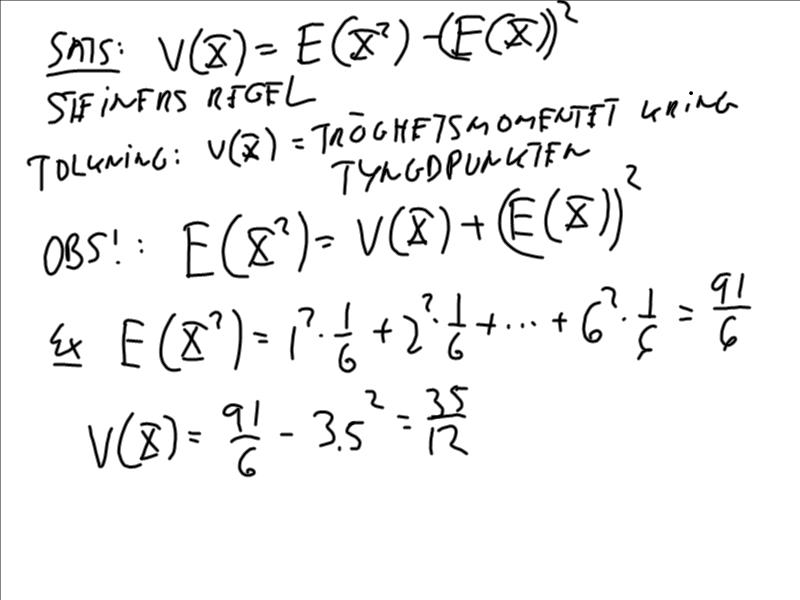 SATS: V(X) = E(X²) - (E(X))²
STEINERS REGEL
TOLKNING: V(X) = TRÖGHETSMOMENTET KRING
TYNGDPUNKTEN
OBS!: E(X²) = V(X) + (E(X))²
Ex E(X²) = 1² · 1/6 + 2² · 1/6 + ... + 6² · 1/6 = 91/6
V(X) = 91/6 - 3.5² = 35/12